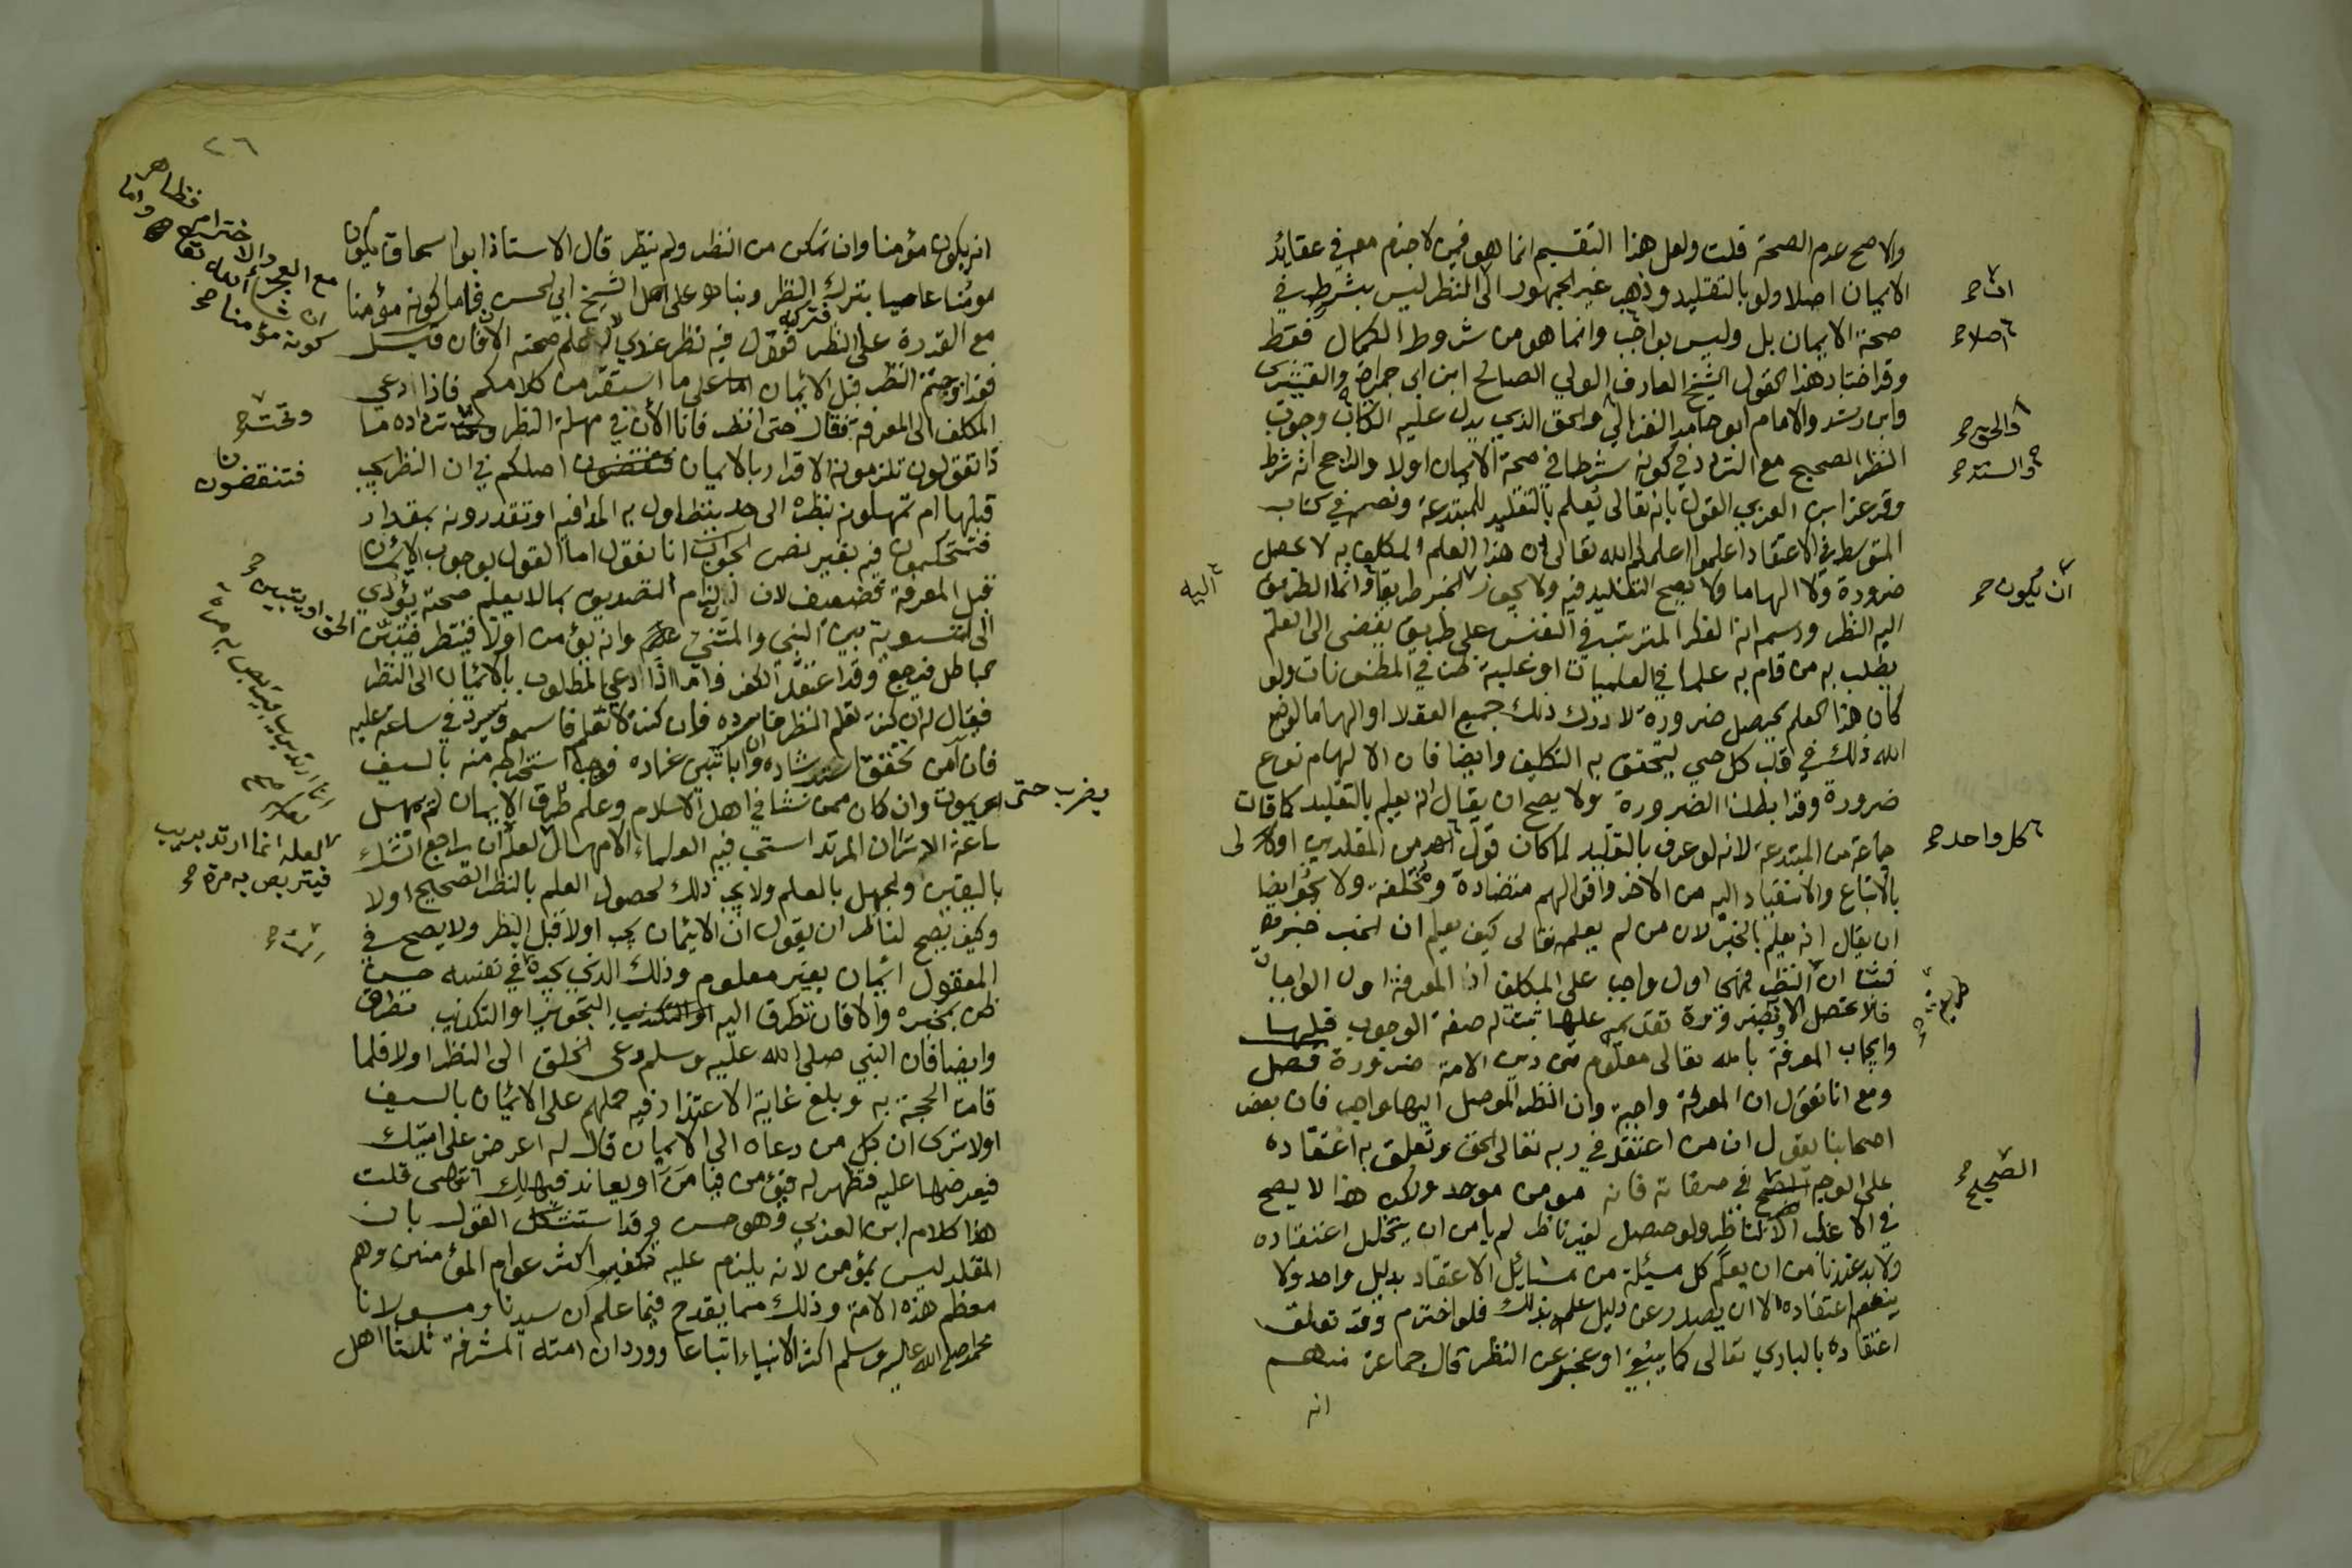 والاصح عدم الصحة قلت ولعل هذا التقسيم انما هو فيمن لا جزم معه في عقائد
الايمان اصلا ولو بالتقليد وذهب غير الجمهور الى النظر ليس بشرط في
صحة الايمان بل وليس بواجب وانما هو من شروط الكمال فقط
وقد اختار هذا القول الشيخ العارف الولي الصالح ابن ابي جمرة والقشيري
وابن رشد والامام ابو حامد الغزالي والحق الذي يدل عليه الكتاب وجوب
النظر الصحيح مع التردد في كونه شرطا في صحة الايمان اولا والراجح انه شرط
وقد عزا ابن العربي القول بانه تعالى يعلم بالتقليد للمبتدعة ونصه في كتاب
المتوسط في الاعتقاد اعلموا علمكم الله تعالى ان هذا العلم المكلف به لا يحصل
ضرورة ولا الهاما ولا يصح التقليد فيه ولا يجوز الخبر طريقا وانما الطريق
اليه النظر ورسمه انه الفكر المترتب في النفس على طريق يفضى الى العلم
يطلب به من قام به علما في العلميات او غلبة ظن في المظنونات ولو
كان هذا العلم يحصل ضرورة لادرك ذلك جميع العقلا او الهاما لوضع
الله ذلك في قلب كل حي ليتحقق به التكليف وايضا فان الالهام نوع
ضرورة وقد ابطلنا الضرورة ولا يصح ان يقال انه يعلم بالتقليد كما قالت
جماعة من المبتدعة لانه لو عرف بالتقليد لما كان قول من المقلدين اولى
بالاتباع والانقياد اليه من الاخر واقوالهم متضادة ومختلفة ولا يجوز ايضا
ان يقال انه يعلم بالخبر لان من لم يعلمه تعالى كيف يعلم ان الخبر خبره
فثبت ان النظر وهي اول واجب على المكلف اذ المعرفة اول الواجبات
فلا تحصل الا به فبضرورة تقديمه عليها ثبت له صفة الوجوب قبلها
وايجاب المعرفة بالله تعالى معلوم من دين الامة ضرورة فصل
ومع انا نقول ان المعرفة واجبة وان النظر الموصل اليها واجب فان بعض
اصحابنا يقول ان من اعتقد في ربه تعالى الحق وتعلق به اعتقاده
على الوجه الصحيح في صفاته فانه مومن موحد ولكن هذا لا يصح
في الاغلب الا لناظر ولو حصل لغير ناظر لم يامن ان يتخلل اعتقاده
ولا بد عندنا من ان يعلم كل مسيلة من مسائل الاعتقاد بدليل واحد ولا
ينفعه اعتقاده الا ان يصدر عن دليل علمه بذلك فلو اخترم وقد تعلق
اعتقاده بالباري تعالى كما ينبغي او عجز عن النظر قال جماعة منهم
انه
ان صح
اصلا صح
والحق صح
والسنة صح
ان يكون صح
اليه
كل واحد صح
الصحيح صح
٢٦
انه يكون مؤمنا وان تمكن من النظر ولم ينظر قال الاستاذ ابو اسحاق يكون
مومنا عاصيا بترك النظر وبناه على اصل الشيخ ابي الحسن فاما كونه مؤمنا
مع القدرة على النظر فتركه فقول فيه نظر عندي لا اعلم صحته الان فان قيل
فقد اوجبتم النظر قبل الايمان على ما استقر من كلامكم فاذا ادعي
المكلف الى المعرفة فقال حتى انظر فانا الان في مهلة النظر وتحت ترداده ما
ذا تقولون تلزمونه الاقرار بالايمان فتنقضون اصلكم في ان النظر يجب
قبلها ام تمهلونه بنظره الى حد يتطاول به المدا فيه او تقدرونه بمقدار
فتتحكمون فيه بغير نص الجواب انا نقول اما القول بوجوب الايمان
قبل المعرفة فضعيف لان الزام التصديق بما لا يعلم صحته يؤدي
الى التسوية بين النبي والمتنبي وانه يؤمن اولا فينظر فيتبين
الباطل فيرجع وقد اعتقد الكفر واما اذا ادعي المطلوب بالايمان الى النظر
فيقال له ان كنت تعلم النظر فاسرده وان كنت لا تعلم فاسمع ويسرد في ساعة عليه
فان آمن تحقق استرشاده وان ابا تبين عناده فوجب استخراجه منه بالسيف
او يموت وان كان ممن نشا في اهل الاسلام وعلم طرق الايمان لم يمهل
ساعة الا ترى ان المرتد استحب فيه العلماء الامهال لعله ان يراجع الشك
باليقين والجهل بالعلم ولا يجب ذلك لحصول العلم بالنظر الصحيح اولا
وكيف يصح لناظر ان يقول ان الايمان يجب اولا قبل النظر ولا يصح في
المعقول ايمان بغير معلوم وذلك الذي يجده في نفسه حسن
ظن بمخبره والا فان تطرق اليه التجويز او التكذيب تطرق
وايضا فان النبي صلى الله عليه وسلم دعى الخلق الى النظر اولا فلما
قامت الحجة به وبلغ غاية الاعتذار فيه حملهم على الايمان بالسيف
اولا ترى ان كل من دعاه الى الايمان قال له اعرض علي ايتك
فيعرضها عليه فتظهر له فيؤمن فيامن او يعاند فيهلك انتهى قلت
هذا كلام ابن العربي وهو حسن وقد استشكل القول بان
المقلد ليس بمؤمن لانه يلزم عليه تكفير اكثر عوام المؤمنين وهم
معظم هذه الامة وذلك مما يقدح فيما علم ان سيدنا ومولانا
محمد صلى الله عليه وسلم اكثر الانبياء اتباعا وورد ان امته المشرفة ثلثا اهل
فظاهر واما
مع العجز والاخترام
ان شاء الله تعالى
كونه مؤمنا صح
وتحت صح
فتنقضون
الحق او يتبين صح
يضرب حتى
لعله انما ارتد بريب
فيتربص به مرة صح